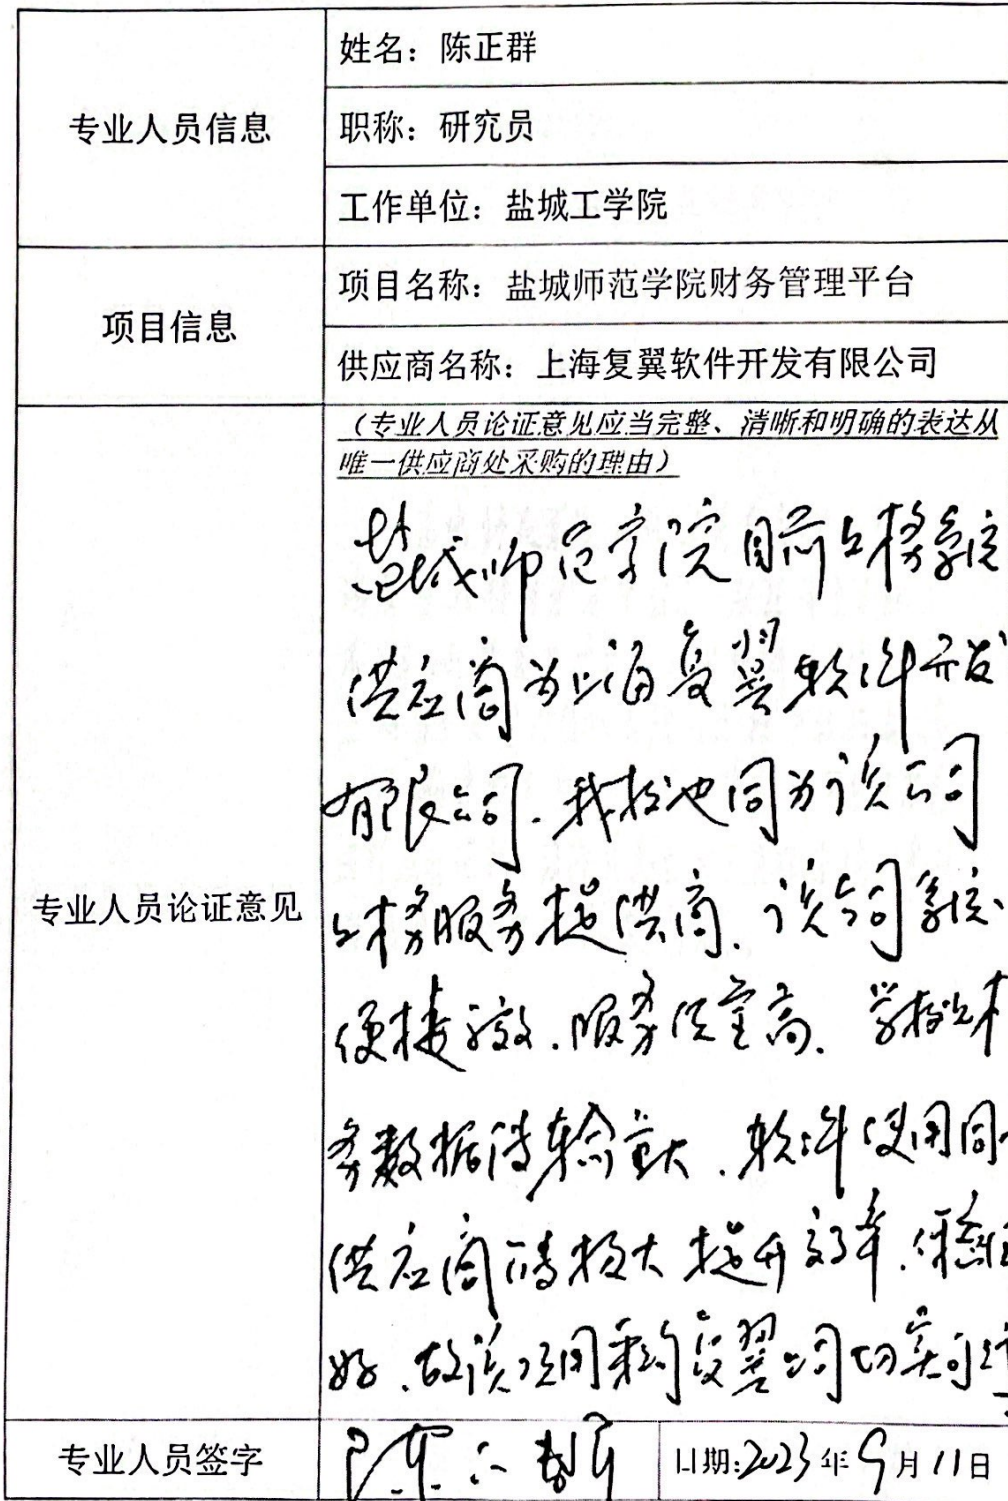 专业人员信息
姓名：陈正群
职称：研究员
工作单位：盐城工学院
项目信息
项目名称：盐城师范学院财务管理平台
供应商名称：上海复翼软件开发有限公司
专业人员论证意见
（专业人员论证意见应当完整、清晰和明确的表达从
唯一供应商处采购的理由）
盐城师范学院目前财务系统
供应商为上海复翼软件开发
有限公司.我校也同为该公司
财务服务提供商、该公司系统
便捷高效.服务质量高、学校财
务数据传输量大.软件使用同一
供应商可极大提升效率.
好.故该项目采购复翼公司切实可
专业人员签字
陈正群
日期:2023年9月11日